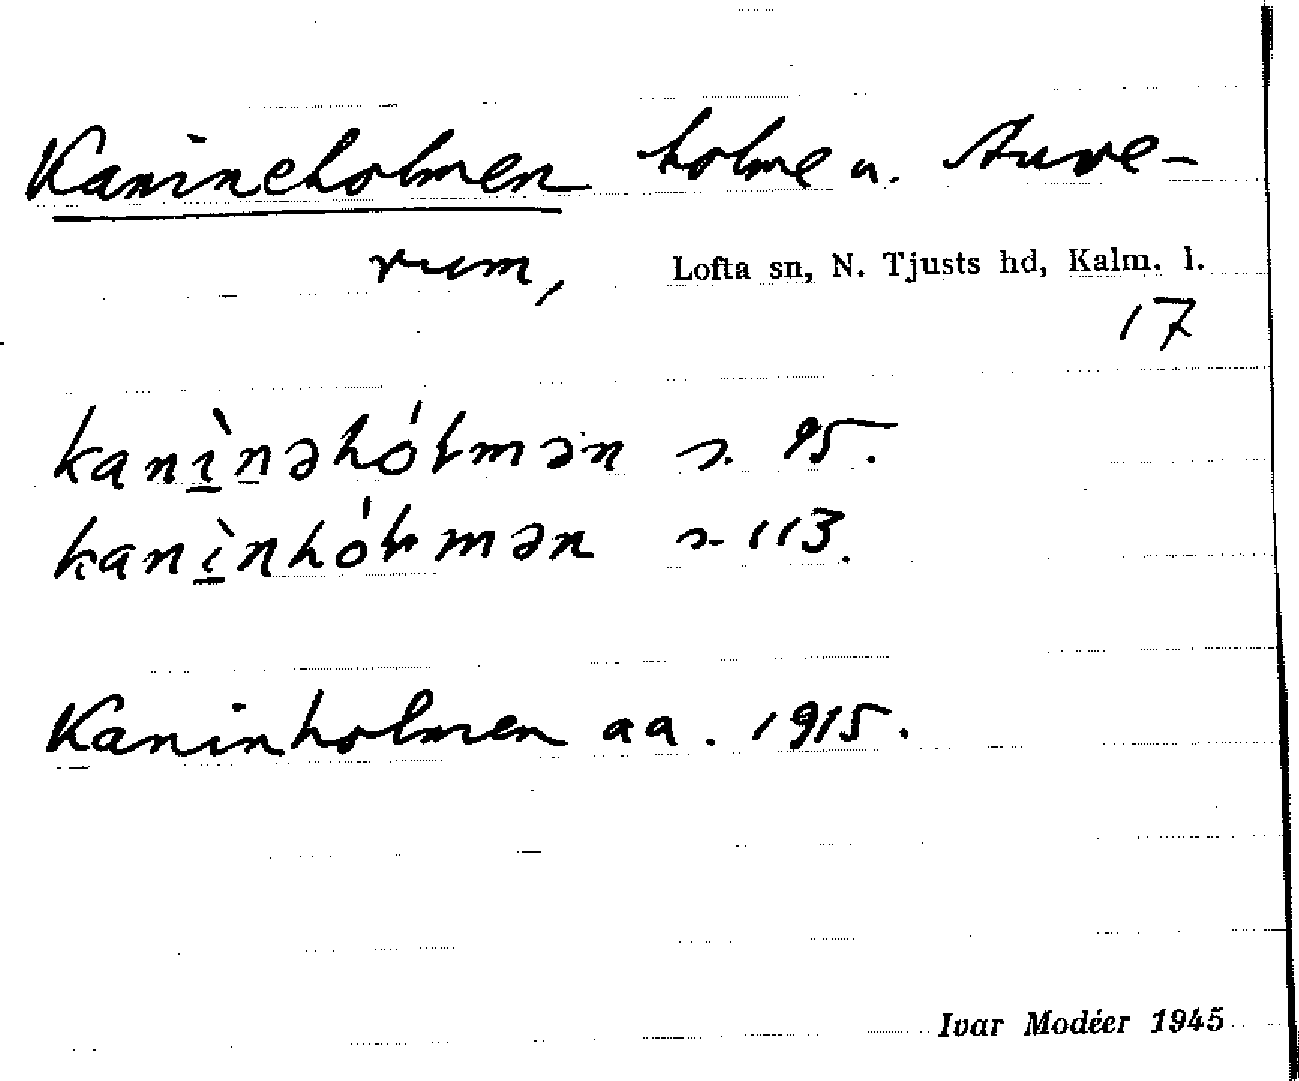 Kanineholmen holme u. Auve-
rum, Lofta sn, N. Tjusts hd, Kalm. l.
17
kanı̱̀nəhólmən s. 95.
kanı̱̀nhólmən s. 113.
Kaninholmen aa. 1915.
Ivar Modéer 1945